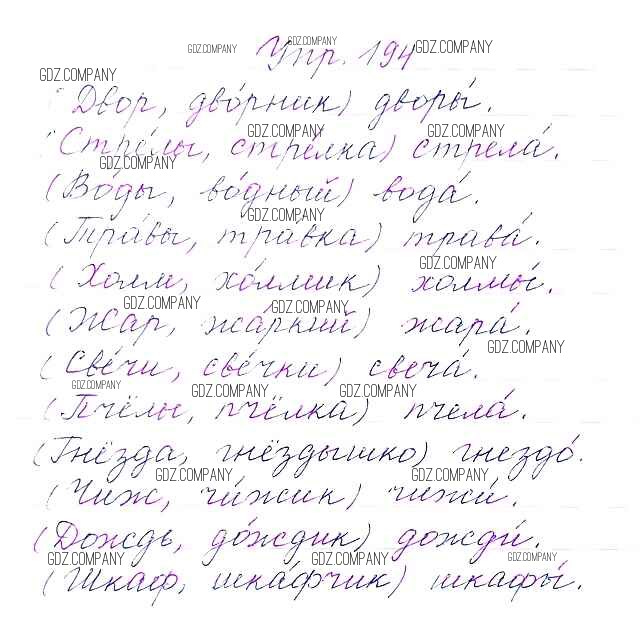 GDZ.COMPANY GDZ.COMPANY Упр. 194 GDZ.COMPANY
GDZ.COMPANY
(Двор, дво́рник) дворы́.
GDZ.COMPANY GDZ.COMPANY
(Стре́лы, стре́лка) стрела́.
GDZ.COMPANY
(Во́ды, во́дный) вода́.
GDZ.COMPANY
(Тра́вы, тра́вка) трава́.
GDZ.COMPANY
(Холм, хо́лмик) холмы́.
GDZ.COMPANY GDZ.COMPANY
(Жар, жа́ркий) жара́.
GDZ.COMPANY
(Све́чи, све́чки) свеча́.
GDZ.COMPANY GDZ.COMPANY GDZ.COMPANY
(Пчёлы, пчёлка) пчела́.
(Гнёзда, гнёздышко) гнездо́.
GDZ.COMPANY GDZ.COMPANY
(Чиж, чи́жик) чижи́.
(Дождь, до́ждик) дожди́.
GDZ.COMPANY GDZ.COMPANY GDZ.COMPANY
(Шкаф, шка́фчик) шкафы́.